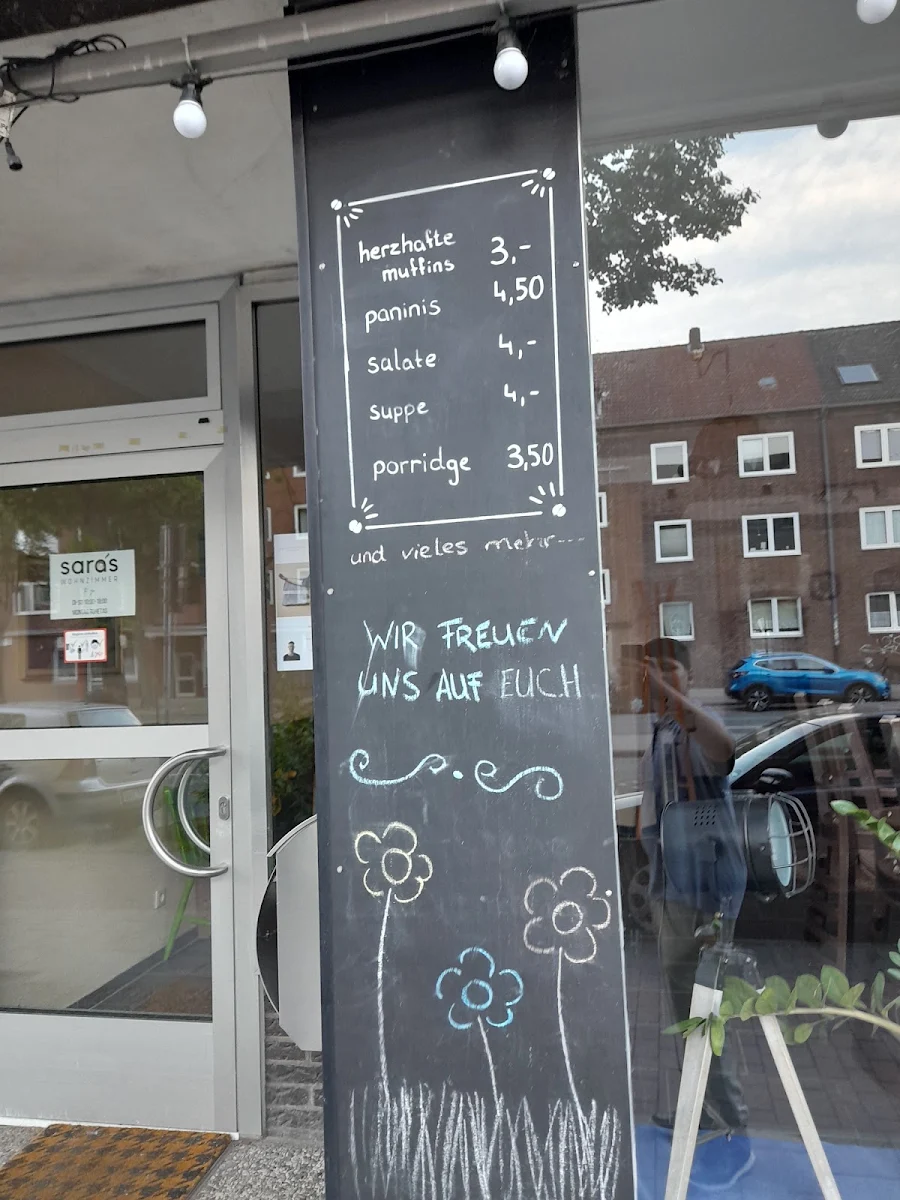 herzhafte
muffins 3,-
paninis 4,50
salate 4,-
suppe 4,-
porridge 3,50
und vieles mehr---
WIR FREUEN
UNS AUF EUCH
sara's
WOHNZIMMER